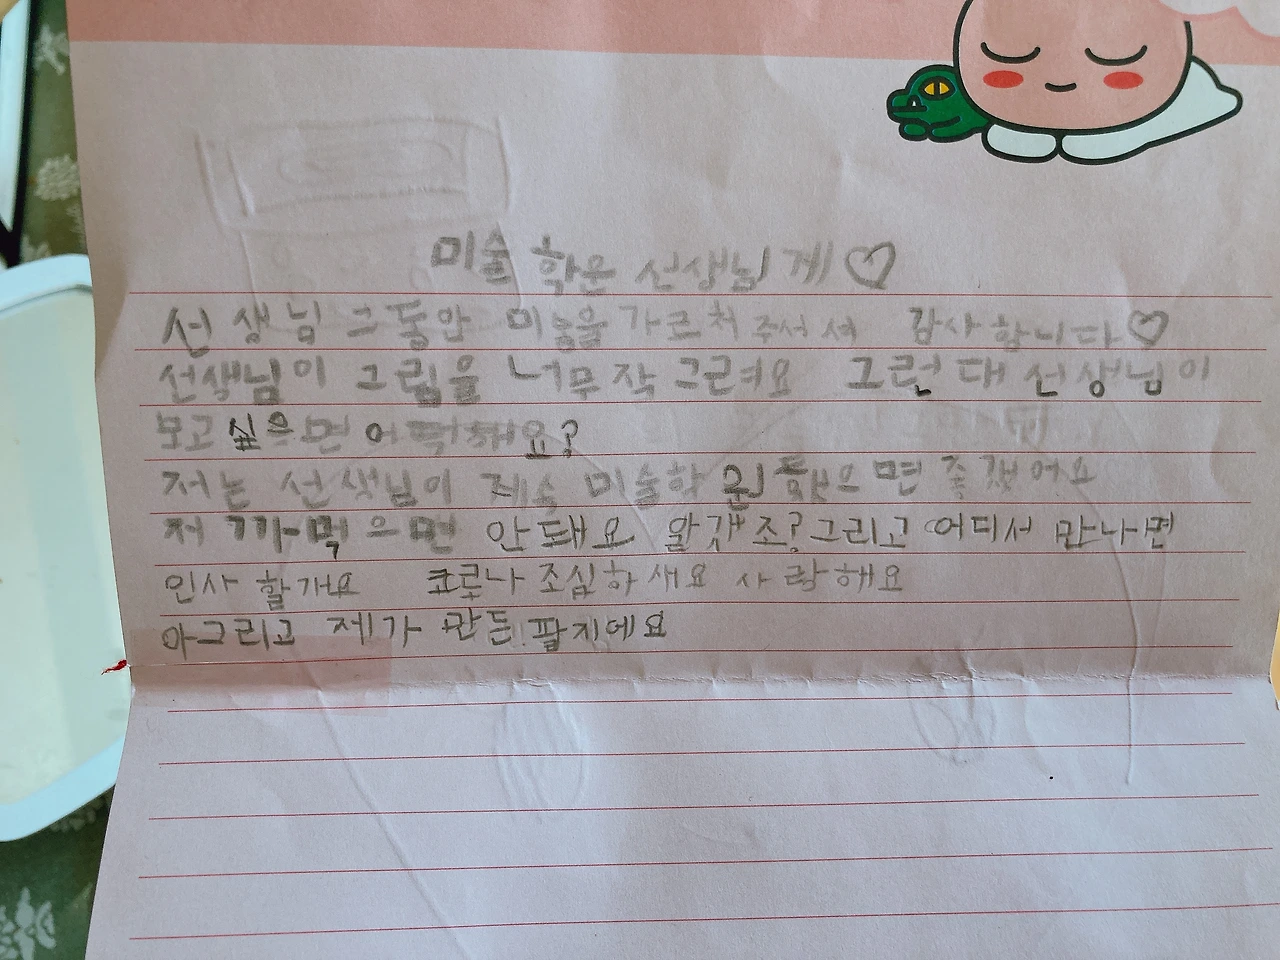 미술 학운 선생님 게♡
선생님 그동안 미술을 가르쳐 주서서 감사합니다♡
선생님이 그림을 너무 작 그려요 그런대 선생님이
보고 싶으면 어떡해요?
저는 선생님이 미술학 원 했으면 좋겠어요
저 까먹으면 안돼요 알갰조? 그리고 어디서 만나면
인사 할가요 코로나 조심하새요 사랑해요
아그리고 제가 만든 팔지에요